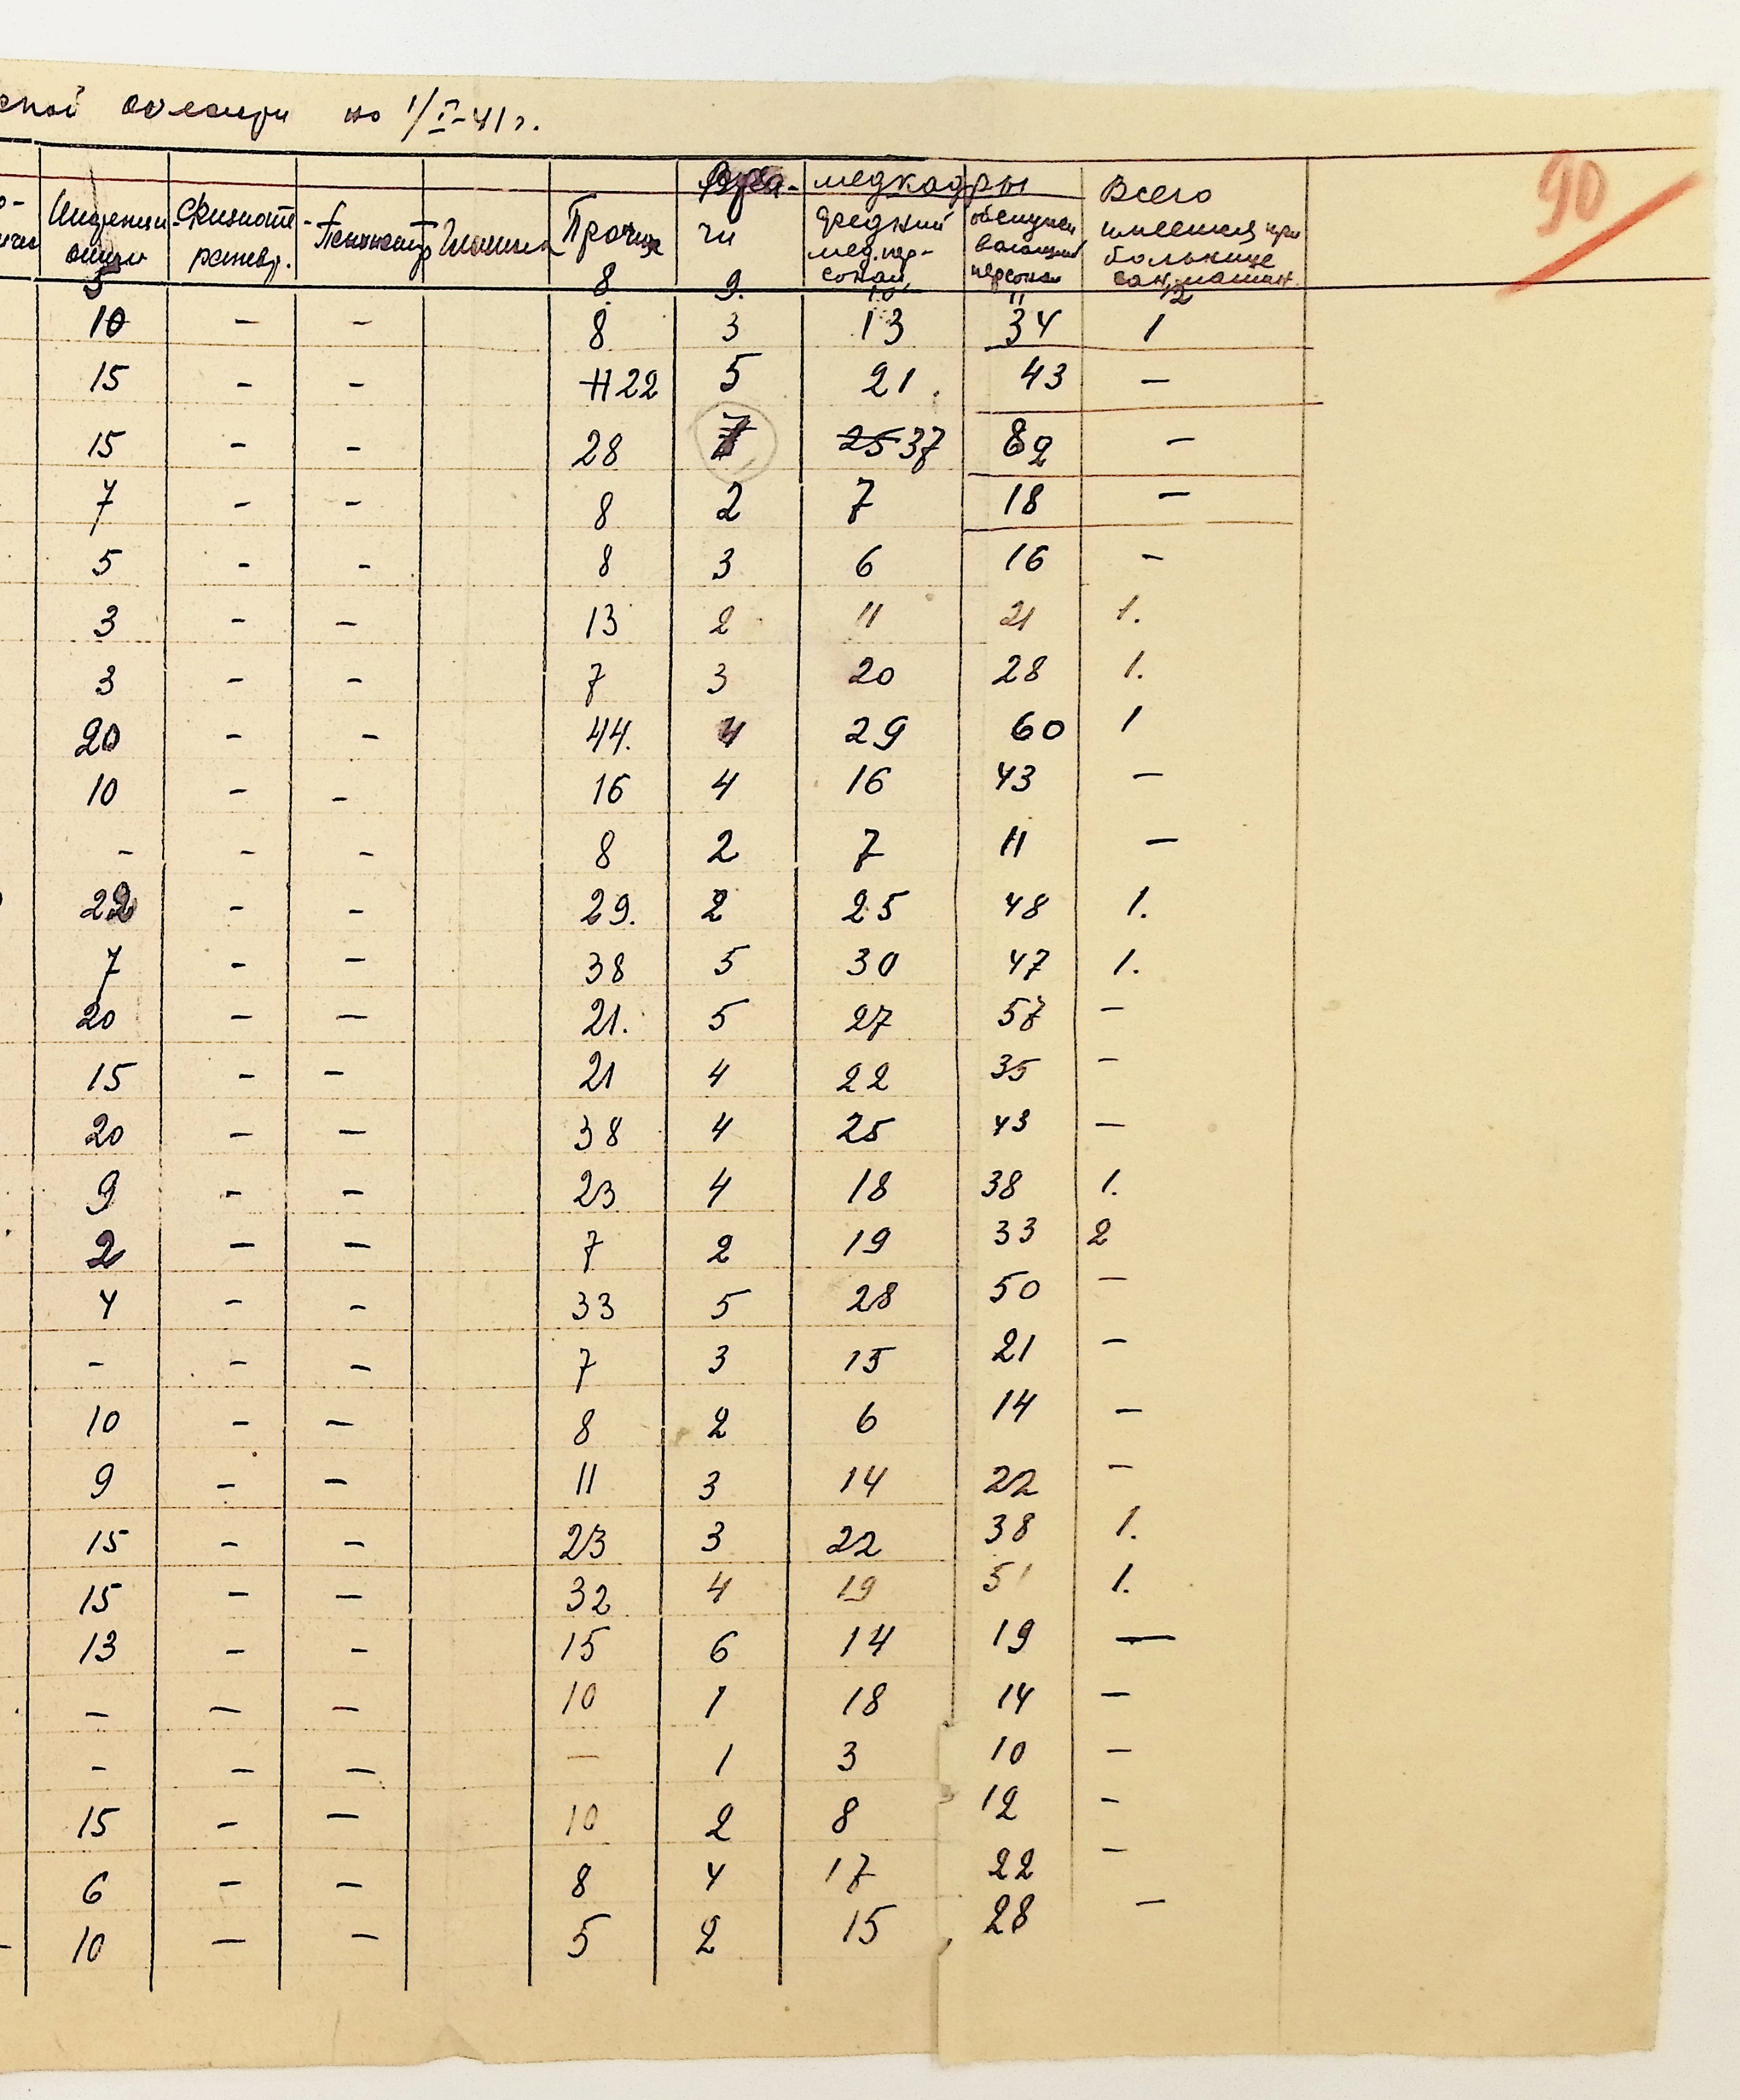 на 1/I-41 г.
90
медкадры
Прочих
чи
средний мед. персонал
обслуживающий персонал
Всего имеется при больнице сан. машин
5 8. 9. 10 11 12
10 - - 8 3 13 34 1
15 - - 22 5 21. 43 -
15 - - 28 7 25 37 82 -
7 - - 8 2 7 18 -
5 - - 8 3 6 16 -
3 - - 13 2 11 21 1.
3 - - 7 3 20 28 1.
20 - - 44. 4 29 60 1
10 - - 16 4 16 43 -
- - - 8 2 7 11 -
22 - - 29. 2 25 48 1.
7 - - 38 5 30 47 1.
20 - - 21. 5 27 57 -
15 - - 21 4 22 35 -
20 - - 38 4 25 43 -
9 - - 23 4 18 38 1.
2 - - 7 2 19 33 2
4 - - 33 5 28 50 -
- - - 7 3 15 21 -
10 - - 8 2 6 14 -
9 - - 11 3 14 22 -
15 - - 23 3 22 38 1.
15 - - 32 4 19 51 1.
13 - - 15 6 14 19 -
- - - 10 1 18 14 -
- - - - 1 3 10 -
15 - - 10 2 8 12 -
6 - - 8 4 17 22 -
10 - - 5 2 15 28 -